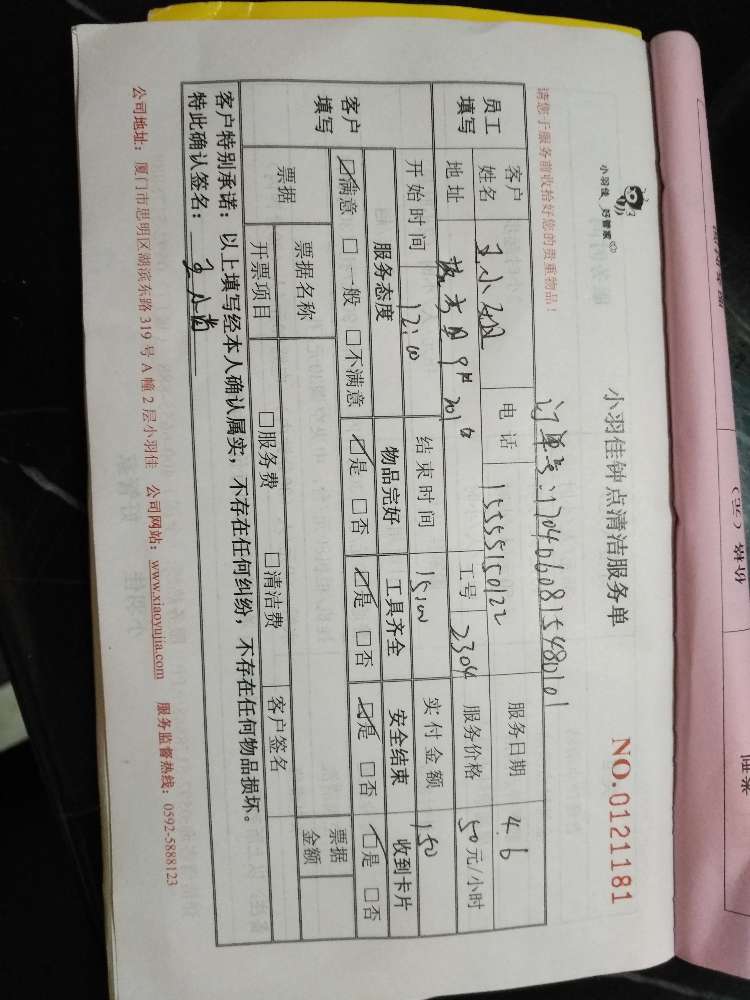 小羽佳 好管家
小羽佳钟点清洁服务单
NO.0121181
请您于服务前收拾好您的贵重物品！
订单号:1704060815480101
员工填写
客户姓名 王小姐 电话 15555150122 服务日期 4.6
地址 9# 201 工号 2304 服务价格 50元/小时
客户填写
开始时间 12:00 结束时间 15:00 实付金额 150
服务态度 物品完好 工具齐全 安全结束 收到卡片
☑满意 □一般 □不满意 ☑是 □否 ☑是 □否 ☑是 □否 ☑是 □否
票据 票据名称 票据金额
开票项目 □服务费 □清洁费 客户签名
客户特别承诺：以上填写经本人确认属实，不存在任何纠纷，不存在任何物品损坏。
特此确认签名：
公司地址：厦门市思明区湖滨东路319号A幢2层小羽佳 公司网站：www.xiaoyujia.com 服务监督热线：0592-5888123